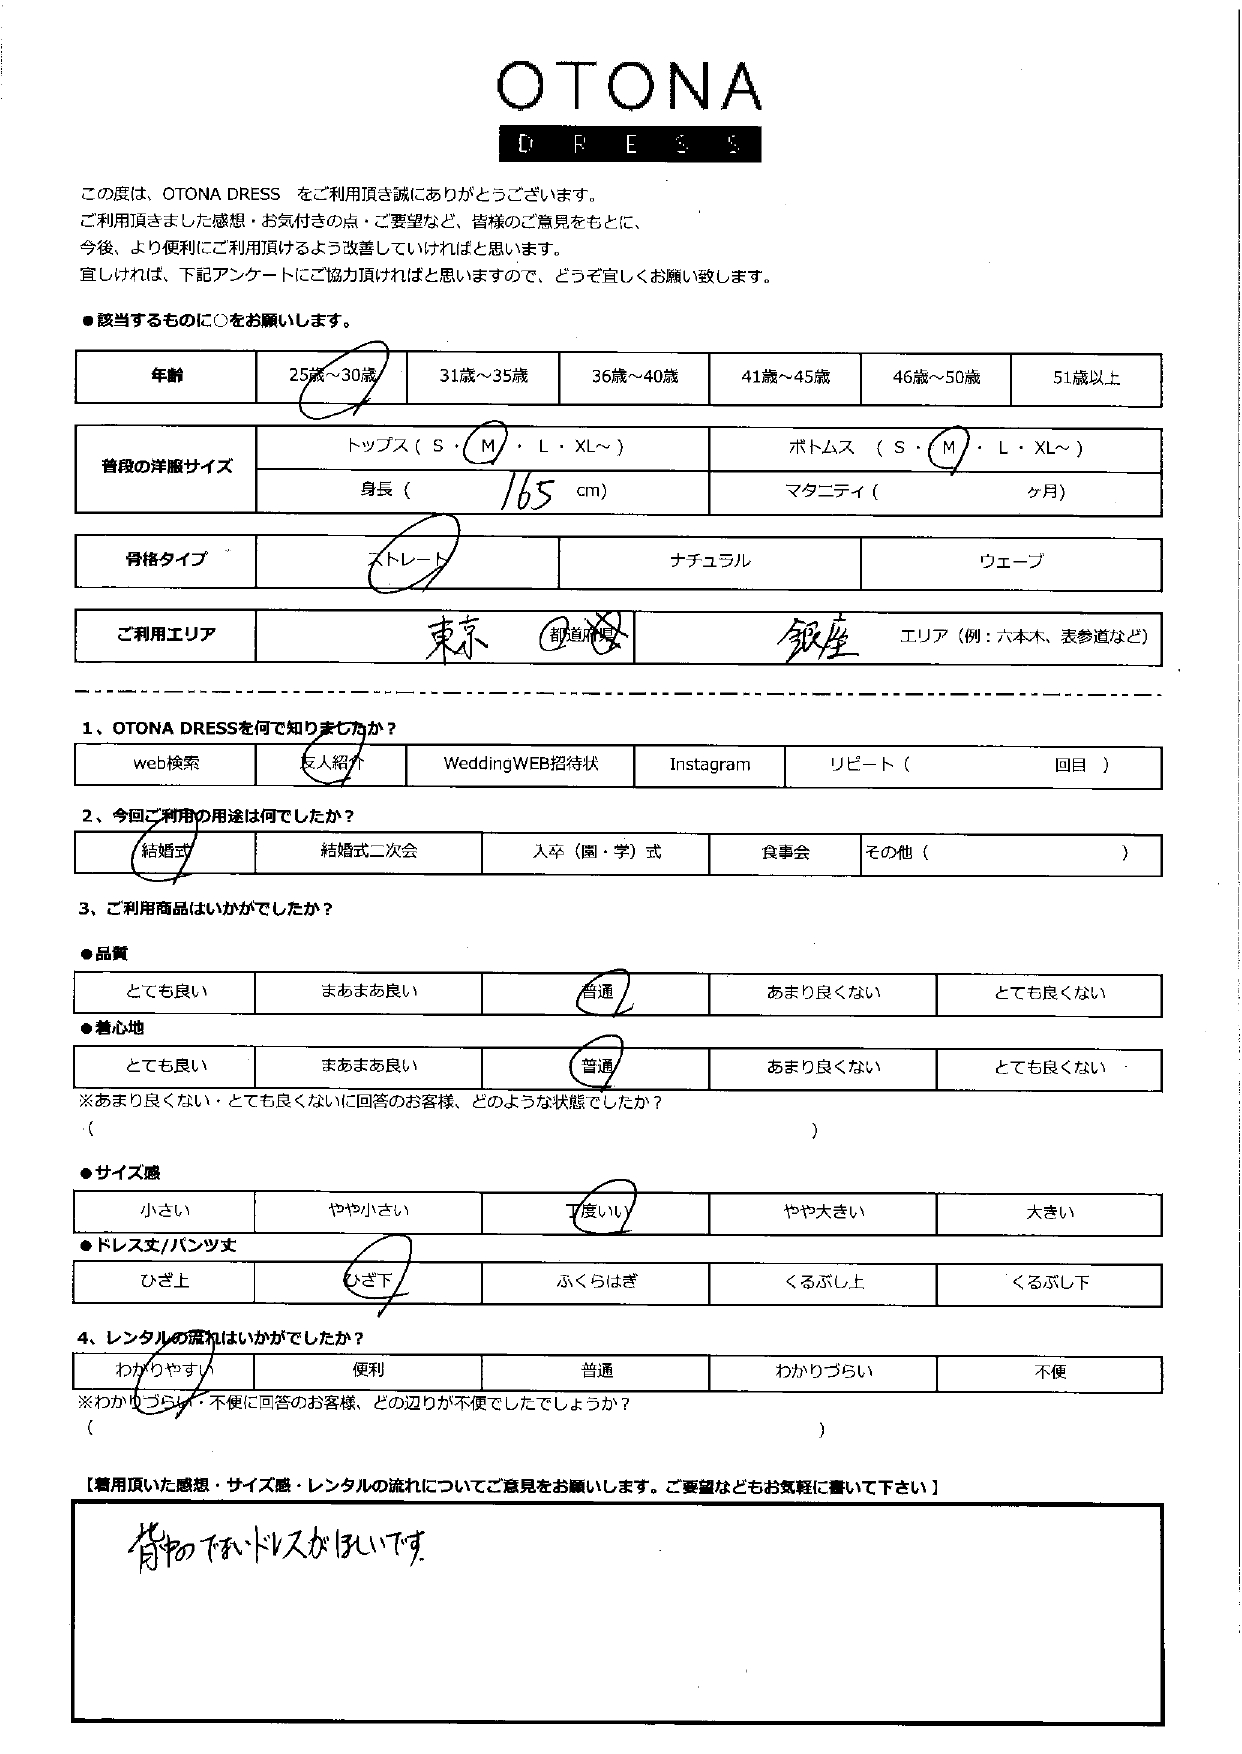 OTONA
DRESS
この度は、OTONA DRESS　をご利用頂き誠にありがとうございます。
ご利用頂きました感想・お気付きの点・ご要望など、皆様のご意見をもとに、
今後、より便利にご利用頂けるよう改善していければと思います。
宜しければ、下記アンケートにご協力頂ければと思いますので、どうぞ宜しくお願い致します。
●該当するものに○をお願いします。
年齢 25歳～30歳 31歳～35歳 36歳～40歳 41歳～45歳 46歳～50歳 51歳以上
普段の洋服サイズ トップス ( S ・ M ・ L ・ XL～ ) ボトムス ( S ・ M ・ L ・ XL～ )
身長 ( 165 cm) マタニティ ( ヶ月)
骨格タイプ ストレート ナチュラル ウェーブ
ご利用エリア 東京 都道府県 銀座 エリア（例：六本木、表参道など）
1、OTONA DRESSを何で知りましたか？
web検索 友人紹介 WeddingWEB招待状 Instagram リピート ( 回目 )
2、今回ご利用の用途は何でしたか？
結婚式 結婚式二次会 入卒（園・学）式 食事会 その他 ( )
3、ご利用商品はいかがでしたか？
●品質
とても良い まあまあ良い 普通 あまり良くない とても良くない
●着心地
とても良い まあまあ良い 普通 あまり良くない とても良くない
※あまり良くない・とても良くないに回答のお客様、どのような状態でしたか？
( )
●サイズ感
小さい やや小さい 丁度いい やや大きい 大きい
●ドレス丈/パンツ丈
ひざ上 ひざ下 ふくらはぎ くるぶし上 くるぶし下
4、レンタルの流れはいかがでしたか？
わかりやすい 便利 普通 わかりづらい 不便
※わかりづらい・不便に回答のお客様、どの辺りが不便でしたでしょうか？
( )
【着用頂いた感想・サイズ感・レンタルの流れについてご意見をお願いします。ご要望などもお気軽に書いて下さい】
背中のでないドレスがほしいです。